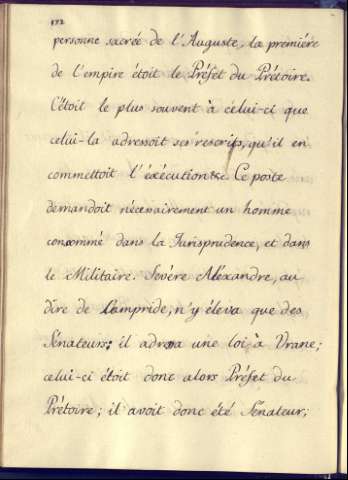 172
personne sacrée de l'Auguste, la première
de l'empire étoit le Préfet du Prétoire.
C'étoit le plus souvent à celui-ci que
celui-la adressoit ses rescrits, qu'il en
commettoit l'éxécution &c. Ce poste
demandoit nécessairement un homme
consommé dans la Jurisprudence, et dans
le Militaire. Sevère Aléxandre, au
dire de Lampride, n'y éleva que des
Sénateurs: il adressa une loi à Vrane;
celui-ci étoit donc alors Préfet du
Prétoire; il avoit donc été Senateur;